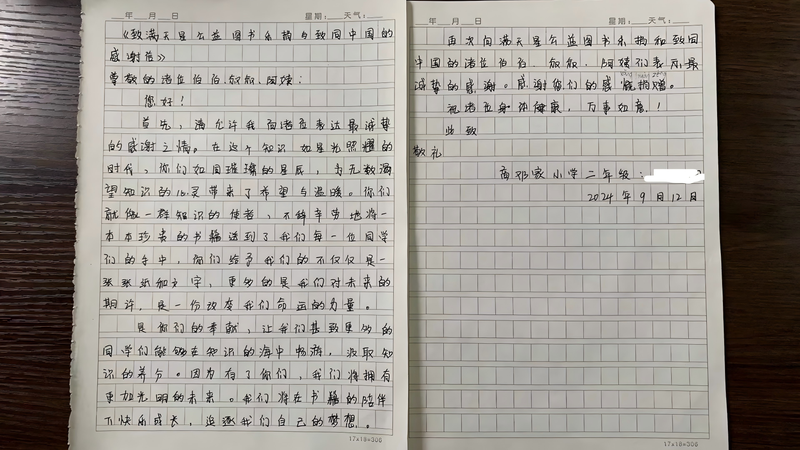 年 月 日 星期： 天气：
《致满天星公益图书乐捐与致同中国的
感谢信》
尊敬的诸位伯伯、叔叔、阿姨：
您好！
首先，请允许我向诸位表达最诚挚
的感谢之情。在这个知识如星光照耀的
时代，你们如同璀璨的星辰，为无数渴
望知识的心灵带来了希望与温暖。你们
就像一群知识的使者，不辞辛劳地将一
本本珍贵的书籍送到了我们每一位同学
们的手中，你们给予我们的不仅仅是一
张张纸和文字，更多的是我们对未来的
期许，是一份改变我们命运的力量。
是你们的奉献，让我们甚致更多的
同学们能够在知识的海中畅游，汲取知
识的养分。因为有了你们，我们将拥有
更加光明的未来。我们将在书籍的陪伴
下快乐成长，追逐我们自己的梦想。
17×18=306
年 月 日 星期： 天气：
再次向满天星公益图书乐捐和致同
中国的诸位伯伯、叔叔、阿姨们表示最
诚挚的感谢。感谢您们的慷慨捐赠。
祝诸位身体健康，万事如意！
此致
敬礼
高邓家小学二年级：
2024年9月12日
17×18=306